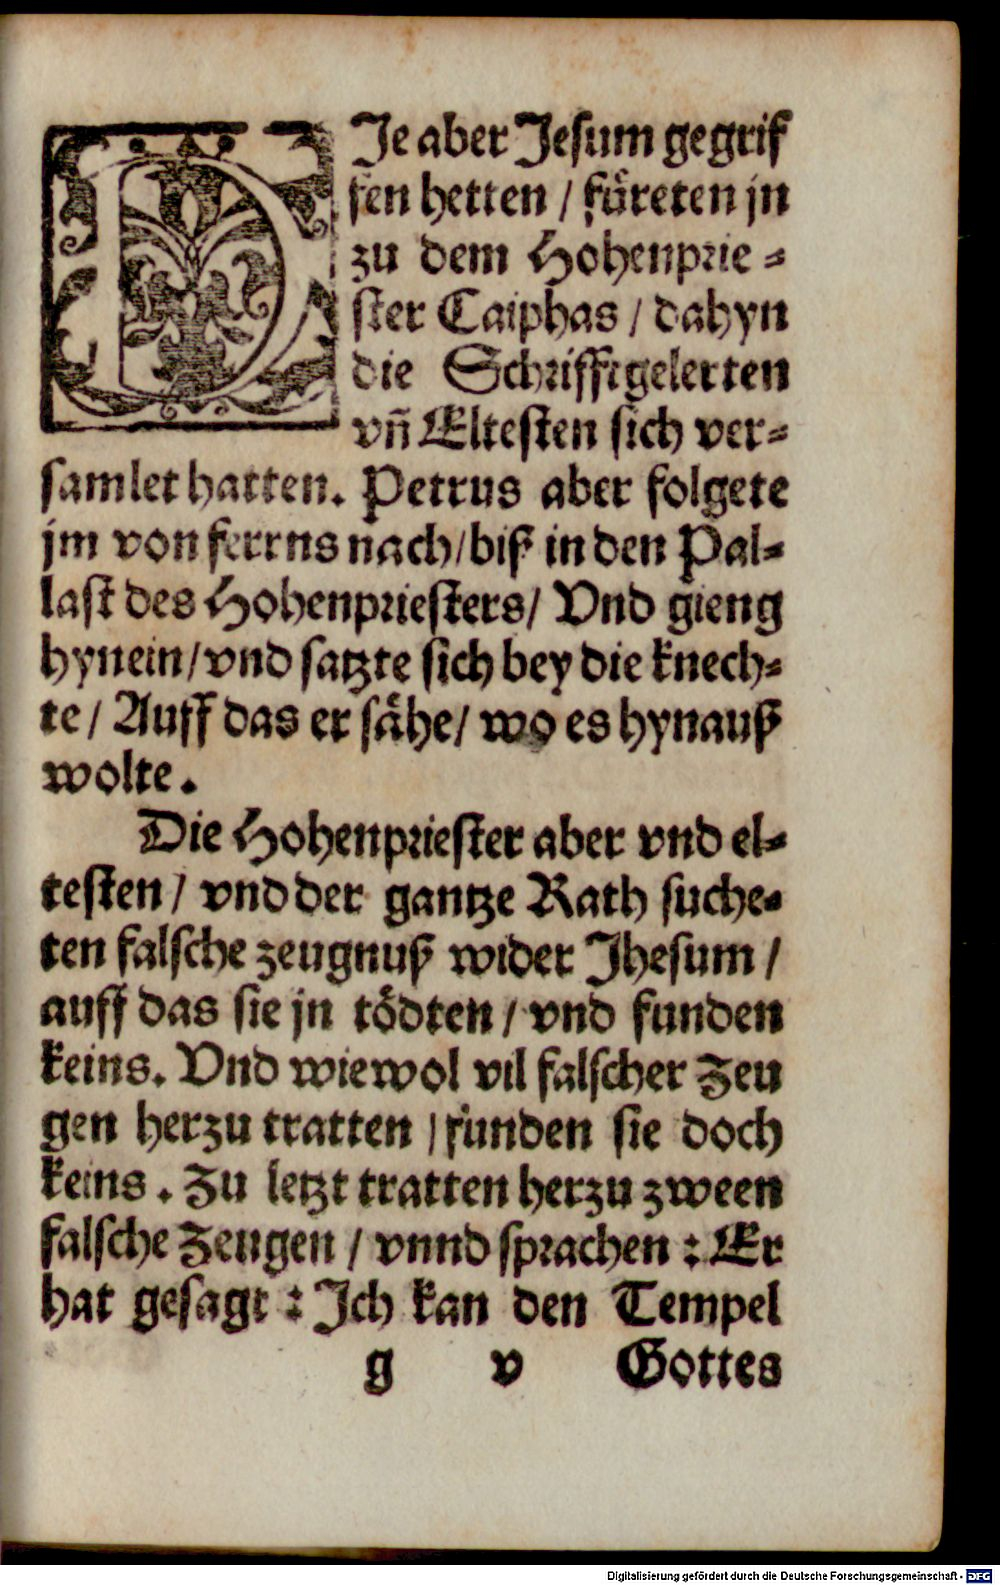 DIe aber Jesum gegrif
fen hetten / füreten jn
zu dem Hohenprie=
ster Caiphas / dahyn
die Schrifftgelerten
vñ Eltesten sich ver=
samlet hatten. Petrus aber folgete
jm von ferrns nach / biß in den Pal=
last des Hohenpriesters / Vnd gieng
hynein / vnd satzte sich bey die knech=
te / Auff das er sähe / wo es hynauß
wolte.
Die Hohenpriester aber vnd el=
testen / vnd der gantze Rath suche=
ten falsche zeugnuß wider Jhesum /
auff das sie jn tödten / vnd funden
keins. Vnd wiewol vil falscher Zeu
gen herzu tratten / funden sie doch
keins. Zu letzt tratten herzu zween
falsche Zeugen / vnnd sprachen : Er
hat gesagt : Jch kan den Tempel
g v Gottes
Digitalisierung gefördert durch die Deutsche Forschungsgemeinschaft - DFG